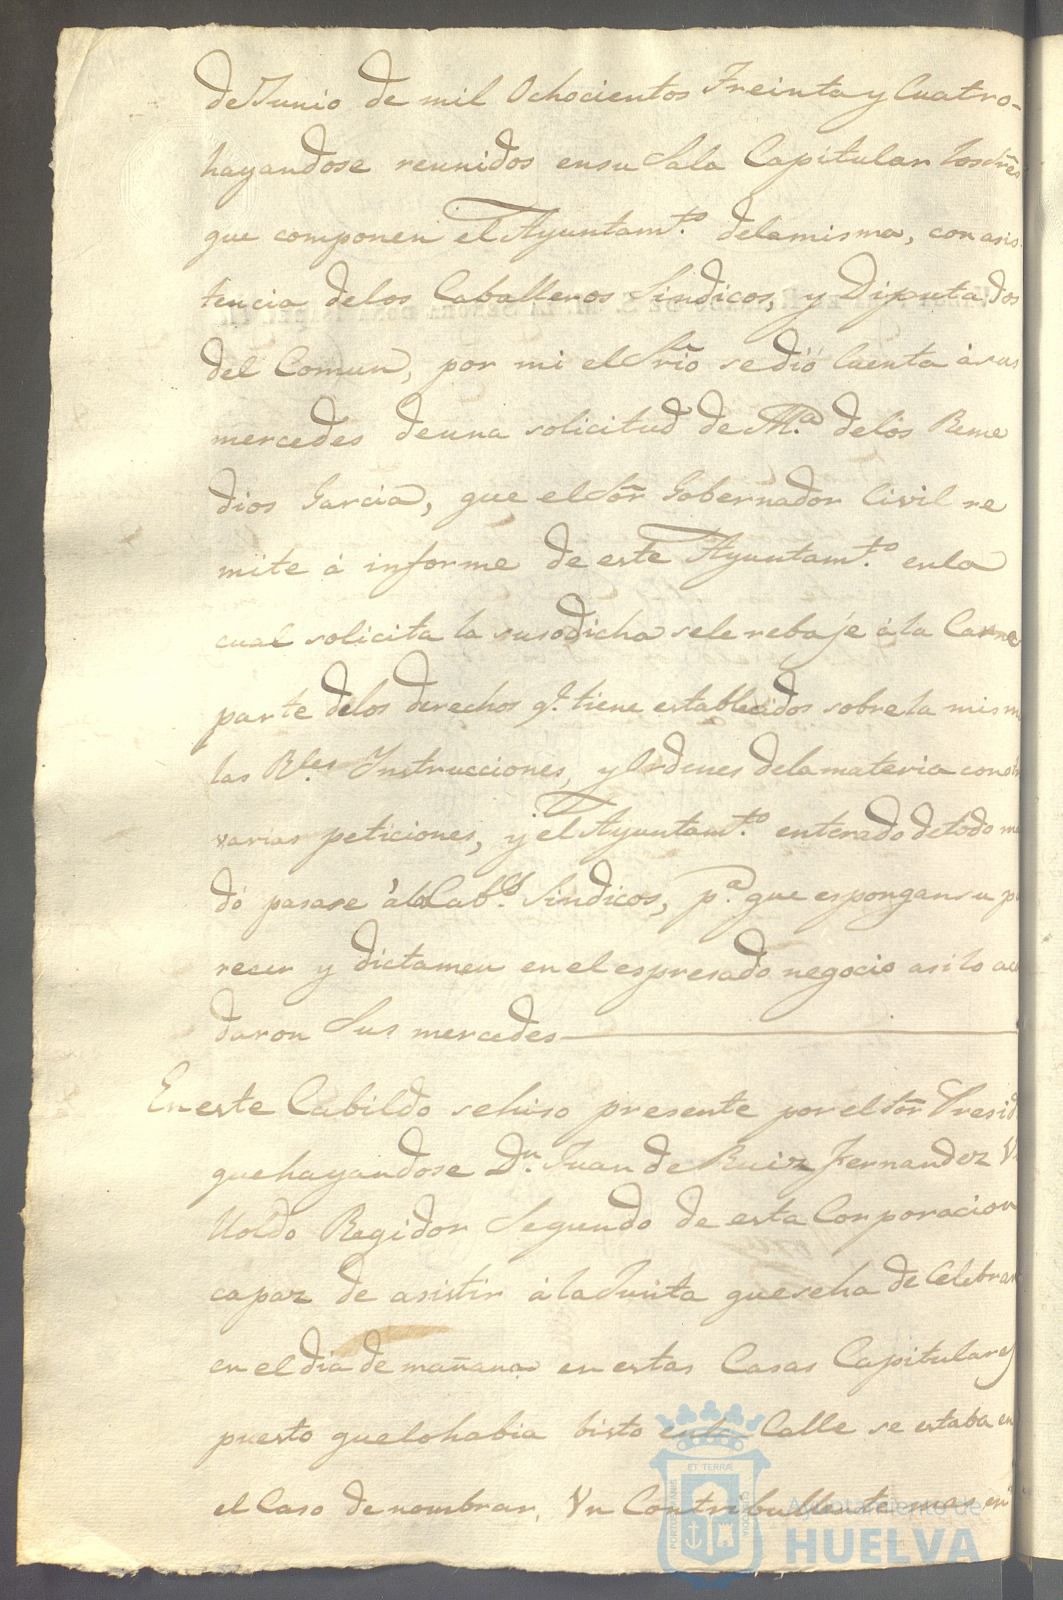 de Junio de mil Ochocientos Treinta y Cuatro-
hayandose reunidos ensu Sala Capitular los Sres
que componen el Ayuntam.to delamisma, con asis
tencia delos Caballeros Sindicos, y Diputados
del Comun, por mi el Srio se dió Cuenta à sus
mercedes deuna solicitud de M.a delos Reme
dios Garcia, que el Sor Gobernador Civil re
mite á informe de este Ayuntam.to enla
cual solicita la susodicha sele rebaje á la Carne
parte delos derechos q.e tiene establecidos sobrela mism
las R.les Instrucciones, y Ordenes dela materia con otr
varias peticiones, y el Ayuntam.to enterado detodo ma
dó pasase à los Cab.s Sindicos, p.a que espongan su pa
recer y dictamen en el espresado negocio asilo aco
daron Sus mercedes
En este Cabildo sehiso presente por el Sor Presid
que hayandose D.n Juan de Ruiz Fernandez
Regidor Segundo de esta Corporacion
capaz de asistir á la Junta que seha de Celebrar
en el dia de mañana en estas Casas Capitulares
puesto que lo habia bisto enla Calle se estaba en
el Caso de nombrar, Vn Contribullente mas, en
PORTUS MARIS
ET TERRÆ
CUSTODIA
Ayuntamiento de
HUELVA